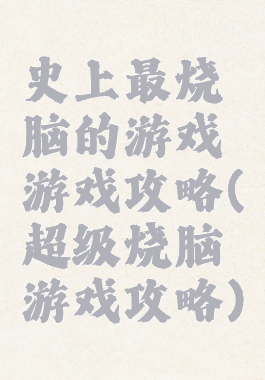 史上最烧
脑的游戏
游戏攻略(
超级烧脑
游戏攻略)